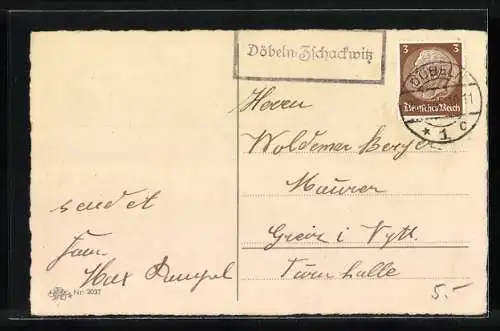 Döbeln-Zschackwitz
3 3
Deutsches Reich
DÖBELN
11
* 1 c
Herrn
Woldemar Berger
Maurer
Greiz i Vgtl.
Turnhalle
sendet
Fam.
Max
Nr. 3037
5.-